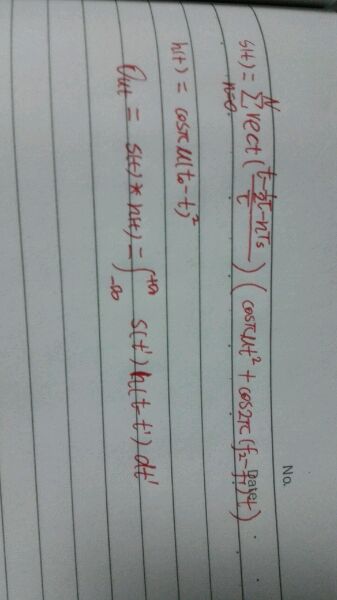 No.
Date
s(t) = \sum_{n=0}^{N} rect ( \frac{t - \frac{1}{2}τ - nTs}{τ} ) ( cosπμt² + cos2π(f₂-f₁)t )
h(t) = cosπμ(t₀-t)²
Out = s(t) * h(t) = \int_{-∞}^{+∞} s(t') h(t-t') dt'